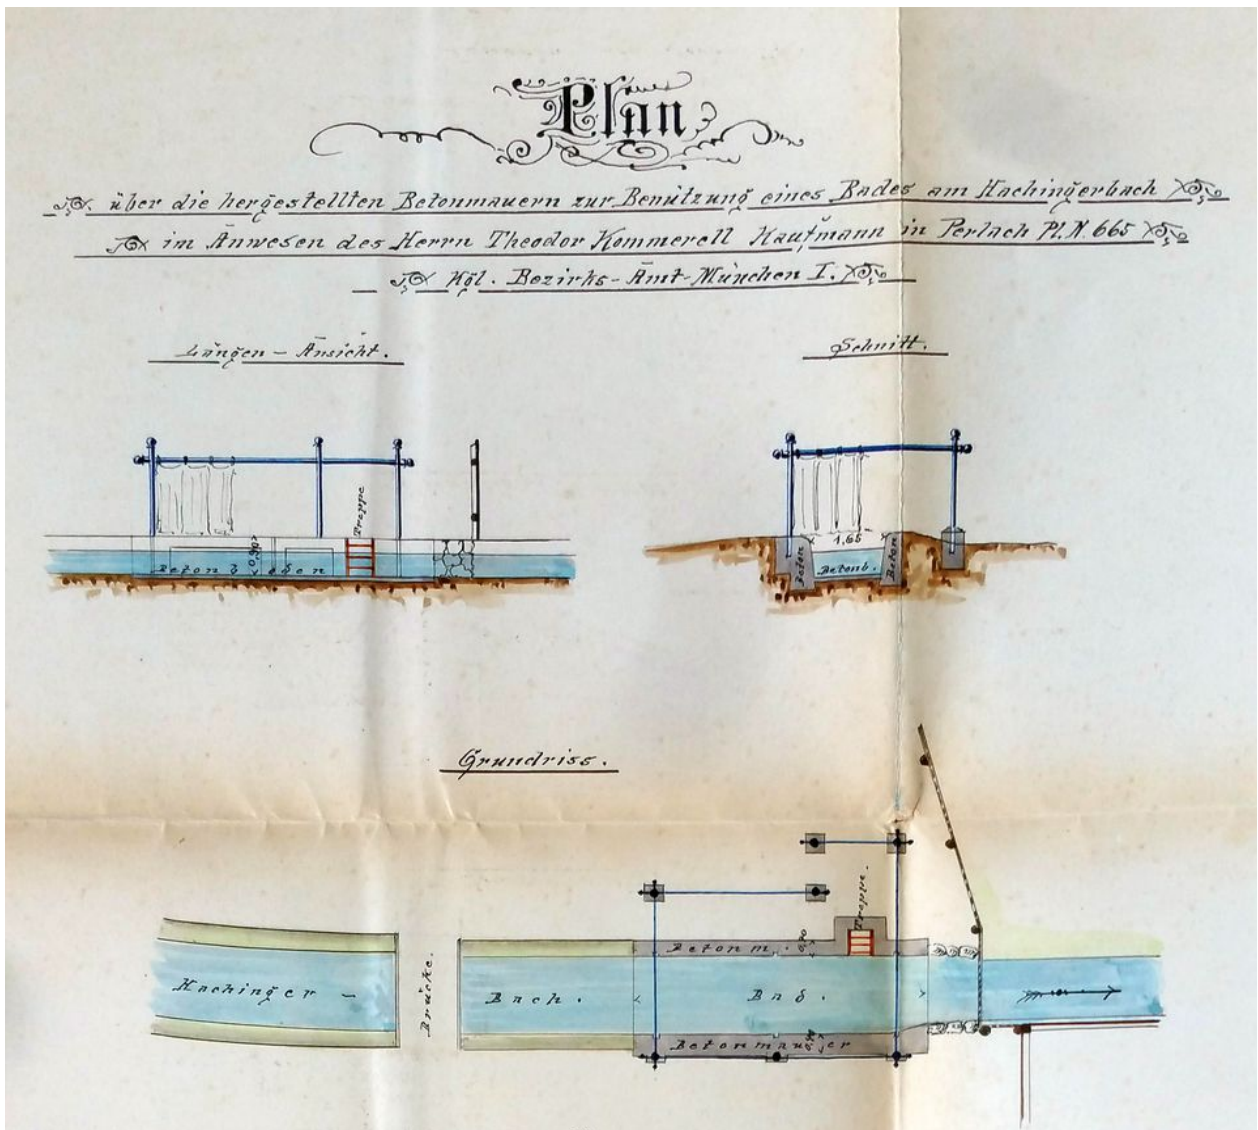 Plan
über die hergestellten Betonmauern zur Benützung eines Bades am Hachingerbach
im Anwesen des Herrn Theodor Kommerell Kaufmann in Perlach Pl. N. 665
Kgl. Bezirks-Amt-München I.
Längen-Ansicht.
Schnitt.
Treppe
0,90
Betonboden
1,65
Beton
Betonb.
Beton
Grundriss.
Treppe.
Betonm.
Hachinger-
Brücke.
Bach.
Bad.
Betonmauer